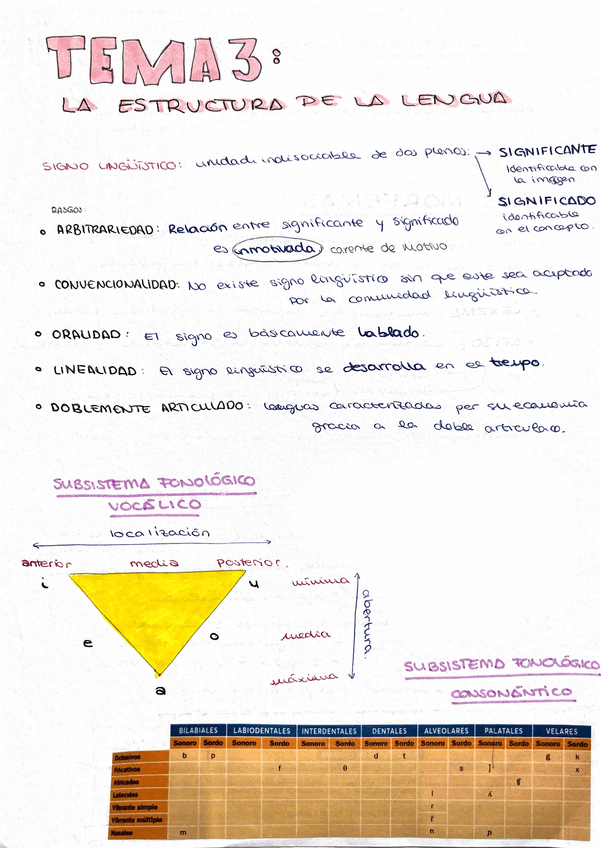 TEMA 3:
LA ESTRUCTURA DE LA LENGUA
SIGNO LINGÜÍSTICO: unidad indisociable de dos planos: → SIGNIFICANTE
Identificable con
la imagen
SIGNIFICADO
identificable
con el concepto.
RASGOS:
• ARBITRARIEDAD: Relación entre significante y significado
es inmotivada, carente de motivo.
• CONVENCIONALIDAD: No existe signo lingüístico sin que este sea aceptado
por la comunidad lingüística.
• ORALIDAD: El signo es básicamente hablado.
• LINEALIDAD: El signo lingüístico se desarrolla en el tiempo.
• DOBLEMENTE ARTICULADO: lenguas caracterizadas per su economía
gracia a la doble articulac.
SUBSISTEMA FONOLÓGICO
VOCÁLICO
localización
anterior media posterior.
i u mínima
e o media
a máxima
abertura.
SUBSISTEMA FONOLÓGICO
CONSONÁNTICO
BILABIALES LABIODENTALES INTERDENTALES DENTALES ALVEOLARES PALATALES VELARES
Sonoro Sordo Sonoro Sordo Sonoro Sordo Sonoro Sordo Sonoro Sordo Sonoro Sordo Sonoro Sordo
Oclusivos b p d t g k
Fricativos f θ s j x
Africados
Laterales l ʎ
Vibrante simple r
Vibrante múltiple r̄
Nasales m n ɲ